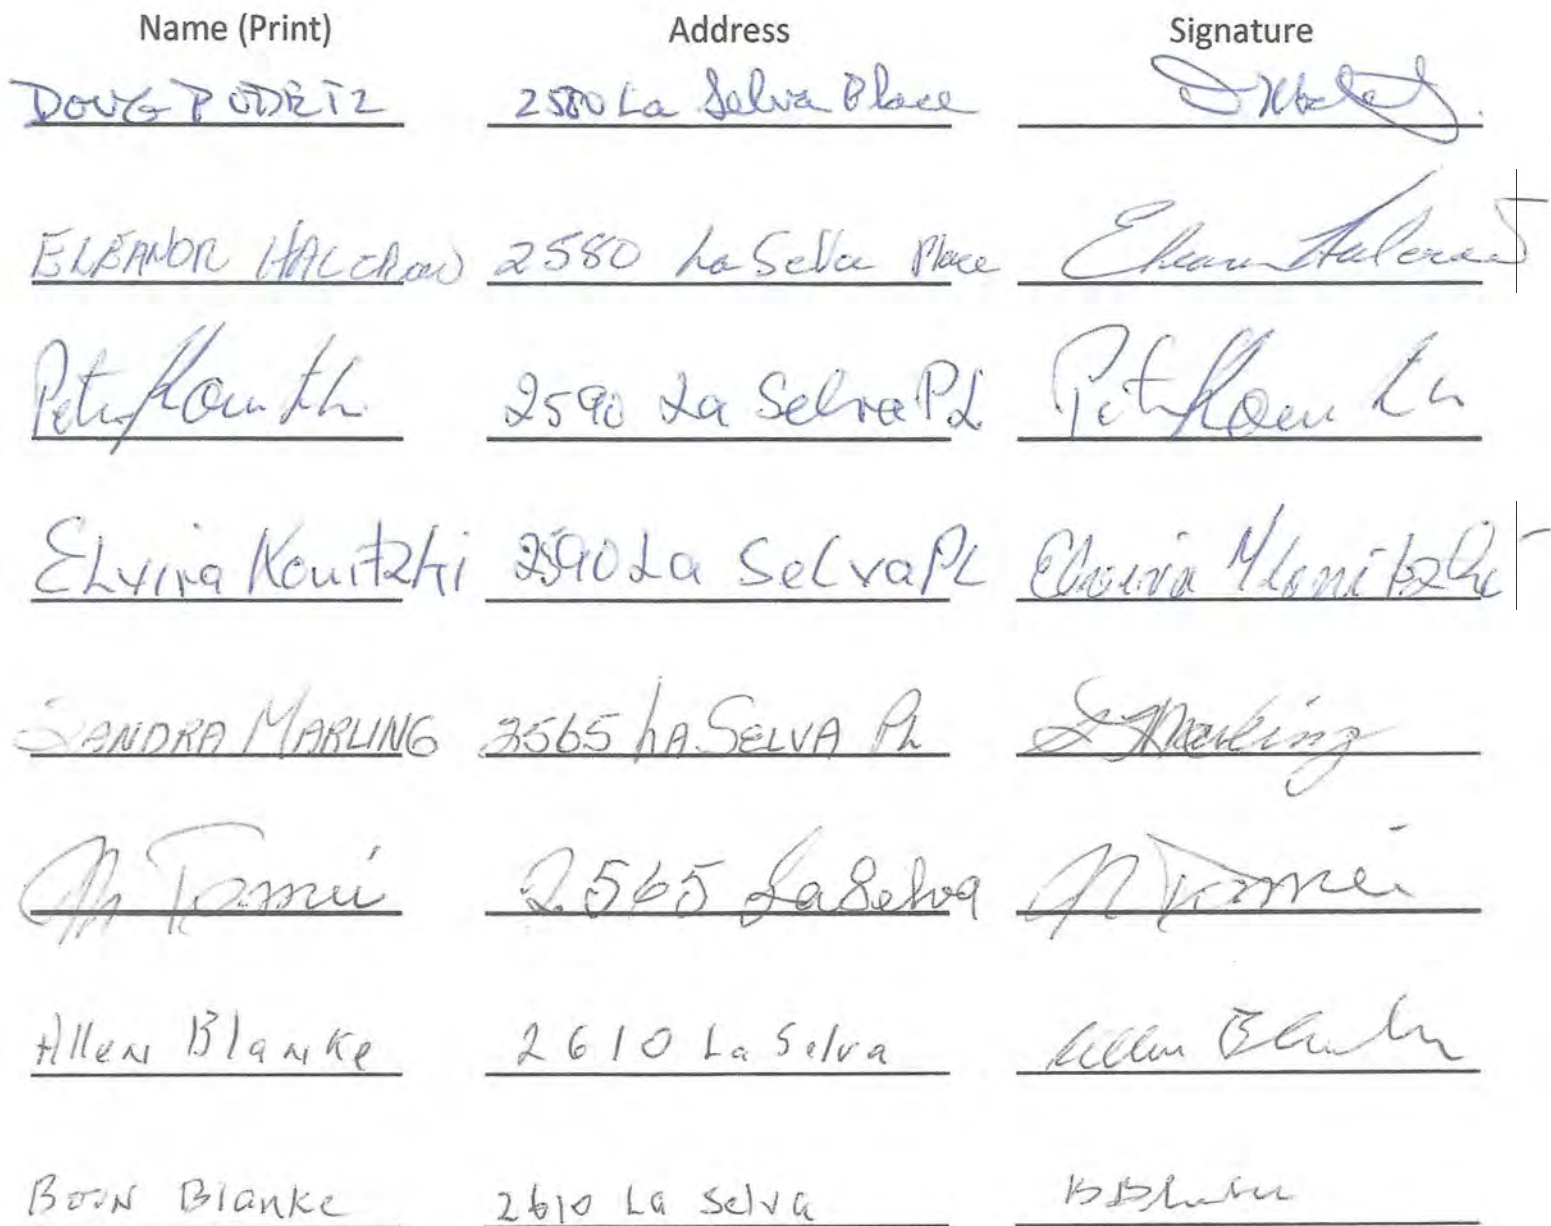 Name (Print) Address Signature
DOUG PODETZ 2580 La Selva Place
ELEANOR HALCROW 2580 La Selva Place Eleanor Halcrow
Peter 2590 La Selva PL Peter
Elvira Konitzki 2590 La Selva PL Elvira Konitzki
SANDRA MARLING 2565 LA SELVA PL S Marling
M Tomei 2565 La Selva M Tomei
Allen Blanke 2610 La Selva Allen Blanke
Blanke 2610 La Selva B Blanke